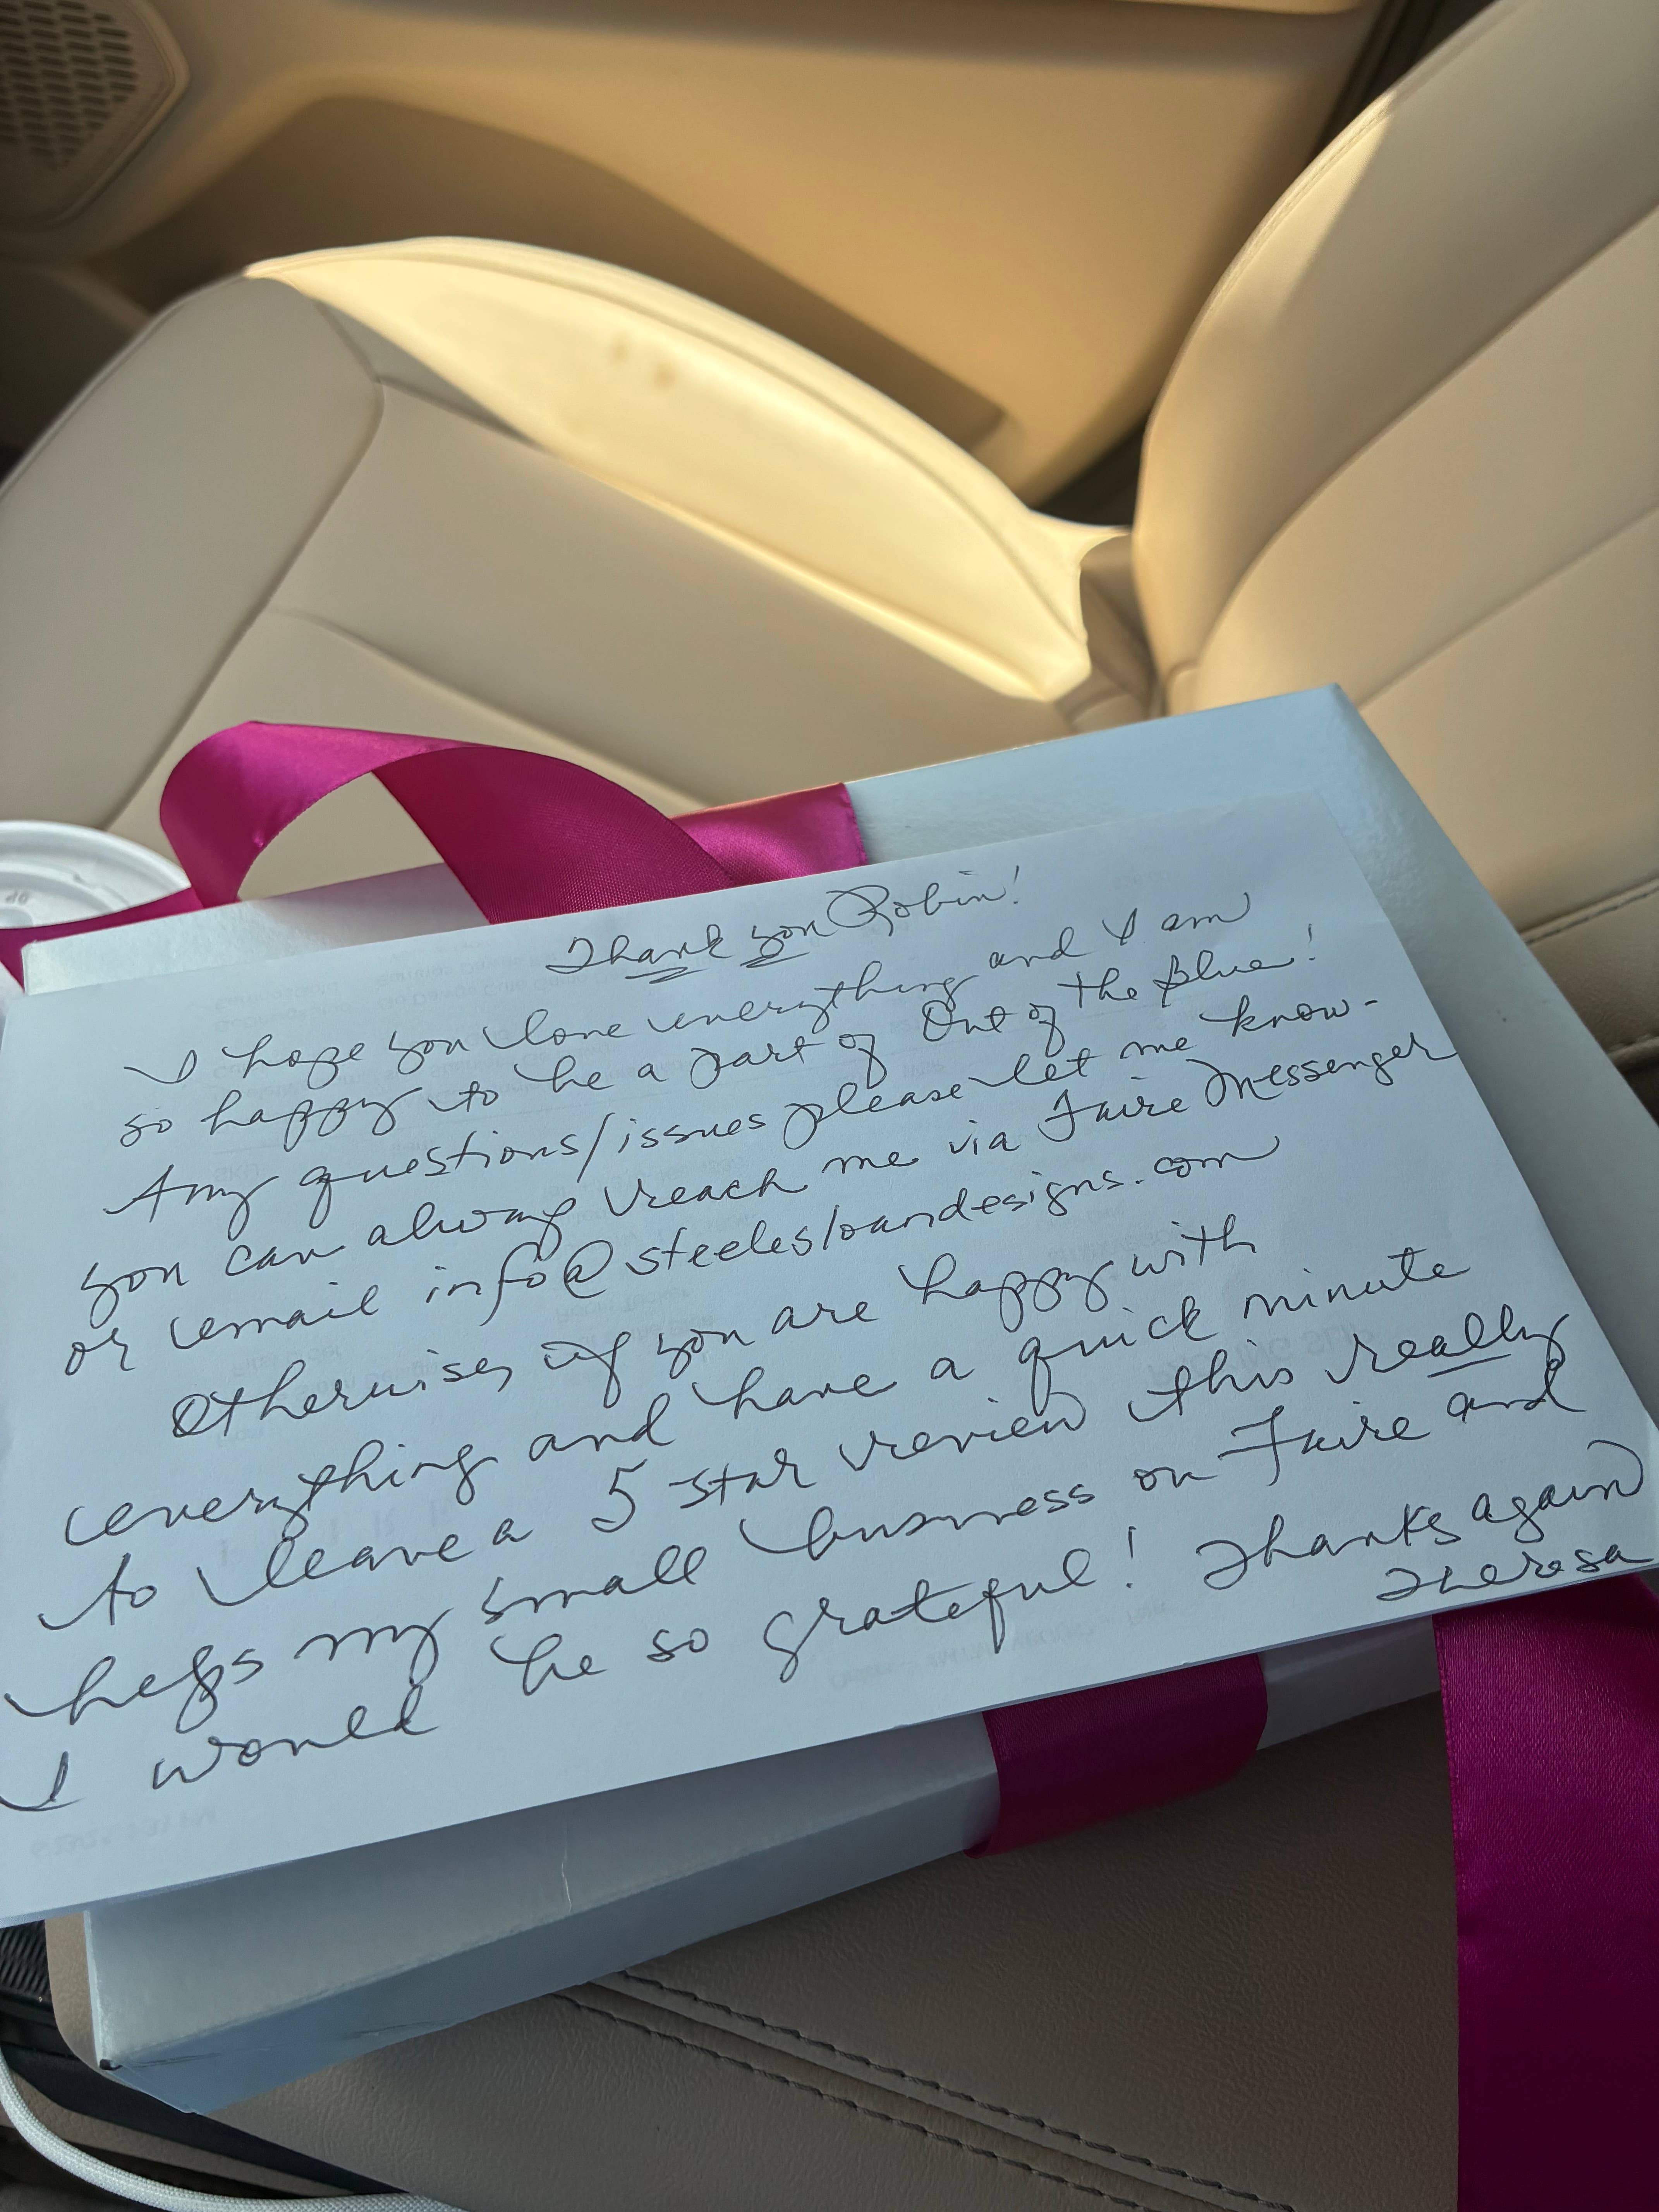 Thank you Robin!
I hope you love everything and I am
so happy to be a part of Out of the Blue!
Any questions/issues please let me know-
you can always reach me via Faire Messenger
or email info@steelesloandesigns.com
Otherwise, if you are happy with
everything and have a quick minute
to leave a 5 star review this really
helps my small business on Faire and
I would be so grateful! Thanks again
Theresa